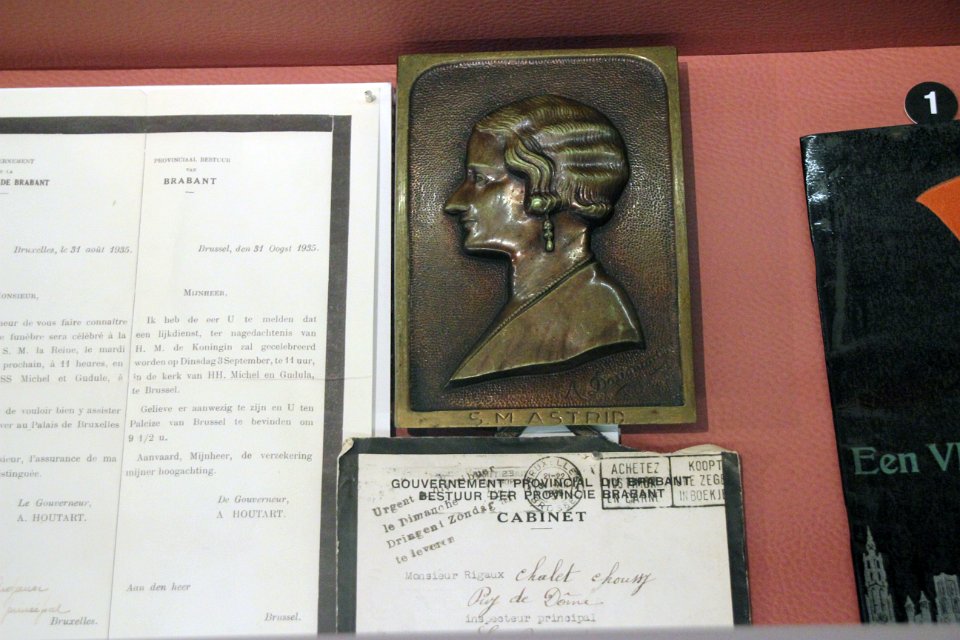 ERNEMENT
DE BRABANT
Bruxelles, le 31 août 1935.
ONSIEUR,
neur de vous faire connaître
e funèbre sera célébré à la
S. M. la Reine, le mardi
prochain, à 11 heures, en
SS Michel et Gudule, à
de vouloir bien y assister
ver au Palais de Bruxelles
sieur, l'assurance de ma
stinguée.
Le Gouverneur,
A. HOUTART.
Bruxelles.
PROVINCIAAL BESTUUR
VAN
BRABANT
Brussel, den 31 Oogst 1935.
MIJNHEER,
Ik heb de eer U te melden dat
een lijkdienst, ter nagedachtenis van
H. M. de Koningin zal gecelebreerd
worden op Dinsdag 3 September, te 11 uur,
in de kerk van HH. Michel en Gudula,
te Brussel.
Gelieve er aanwezig te zijn en U ten
Paleize van Brussel te bevinden om
9 1/2 u.
Aanvaard, Mijnheer, de verzekering
mijner hoogachting.
De Gouverneur,
A. HOUTART.
Aan den heer
Brussel.
S.M. ASTRID
GOUVERNEMENT PROVINCIAL DU BRABANT
BESTUUR DER PROVINCIE BRABANT
CABINET
Urgent
le Dimanche
Dringend Zondag
te leveren
ACHETEZ
KOOPT
UW ZEGELS
IN BOEKJES
Monsieur Rigaux Chalet Choussy
Puy de Dôme
inspecteur principal
1
Een Vl